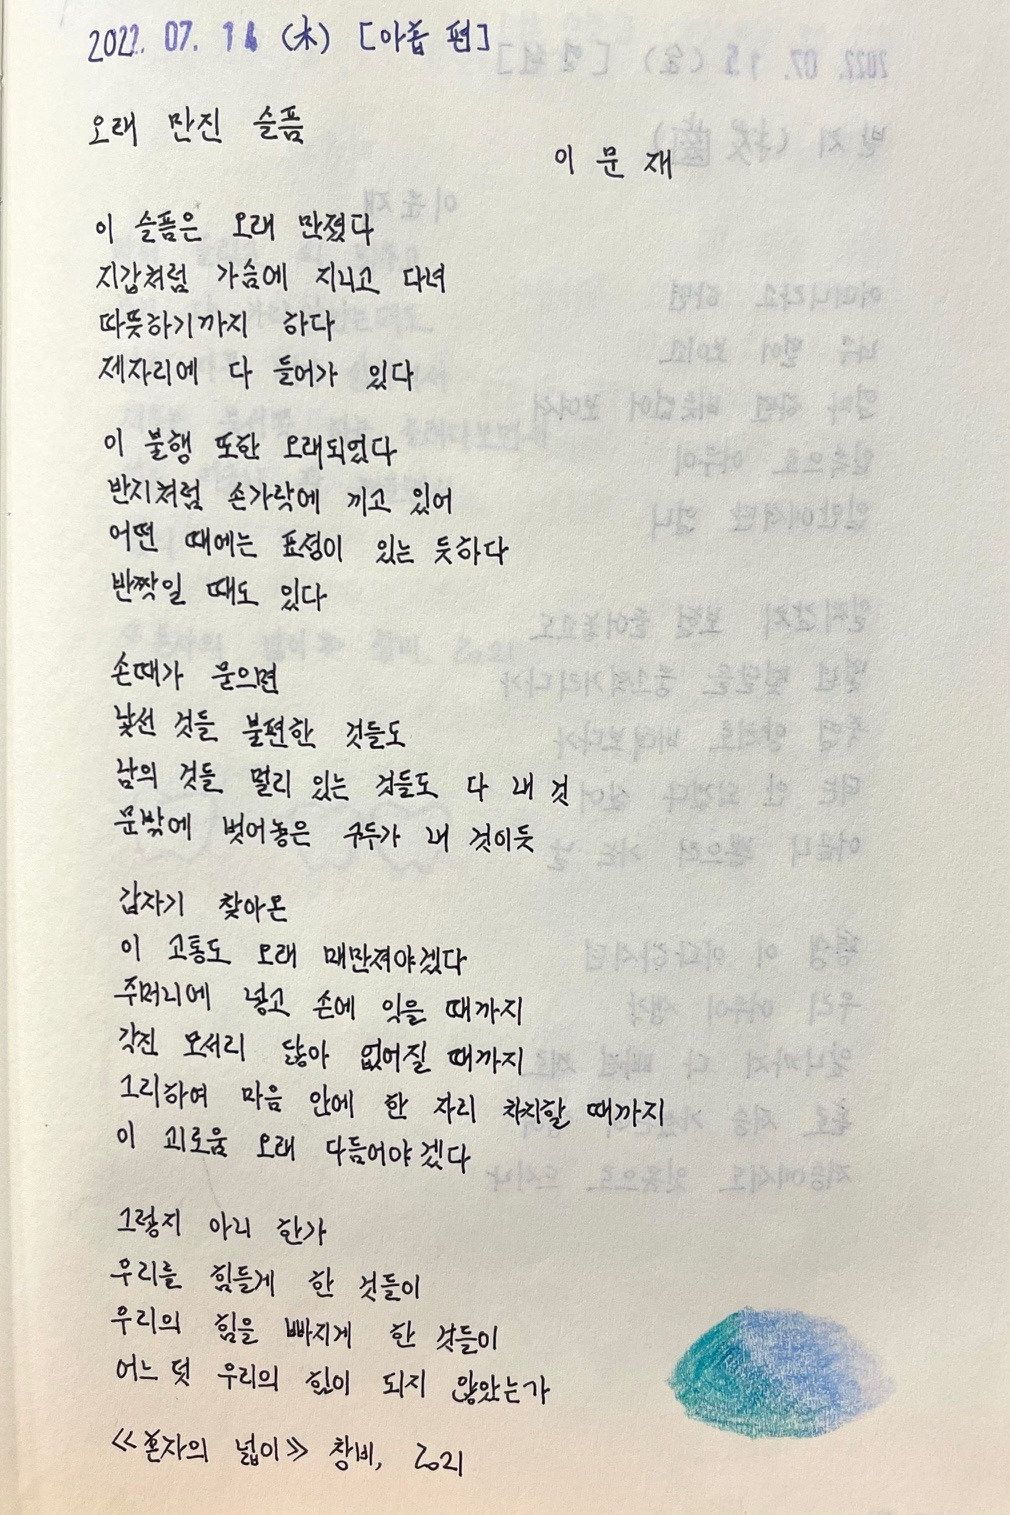 2022. 07. 14 (木) [아홉 편]
오래 만진 슬픔
이문재
이 슬픔은 오래 만졌다
지갑처럼 가슴에 지니고 다녀
따뜻하기까지 하다
제자리에 다 들어가 있다
이 불행 또한 오래되었다
반지처럼 손가락에 끼고 있어
어떤 때에는 표정이 있는 듯하다
반짝일 때도 있다
손때가 묻으면
낯선 것들 불편한 것들도
남의 것들 멀리 있는 것들도 다 내 것
문밖에 벗어놓은 구두가 내 것이듯
갑자기 찾아온
이 고통도 오래 매만져야겠다
주머니에 넣고 손에 익을 때까지
각진 모서리 닳아 없어질 때까지
그리하여 마음 안에 한 자리 차지할 때까지
이 괴로움 오래 다듬어야겠다
그렇지 아니 한가
우리를 힘들게 한 것들이
우리의 힘을 빠지게 한 것들이
어느 덧 우리의 힘이 되지 않았는가
≪혼자의 넓이≫ 창비, 2021